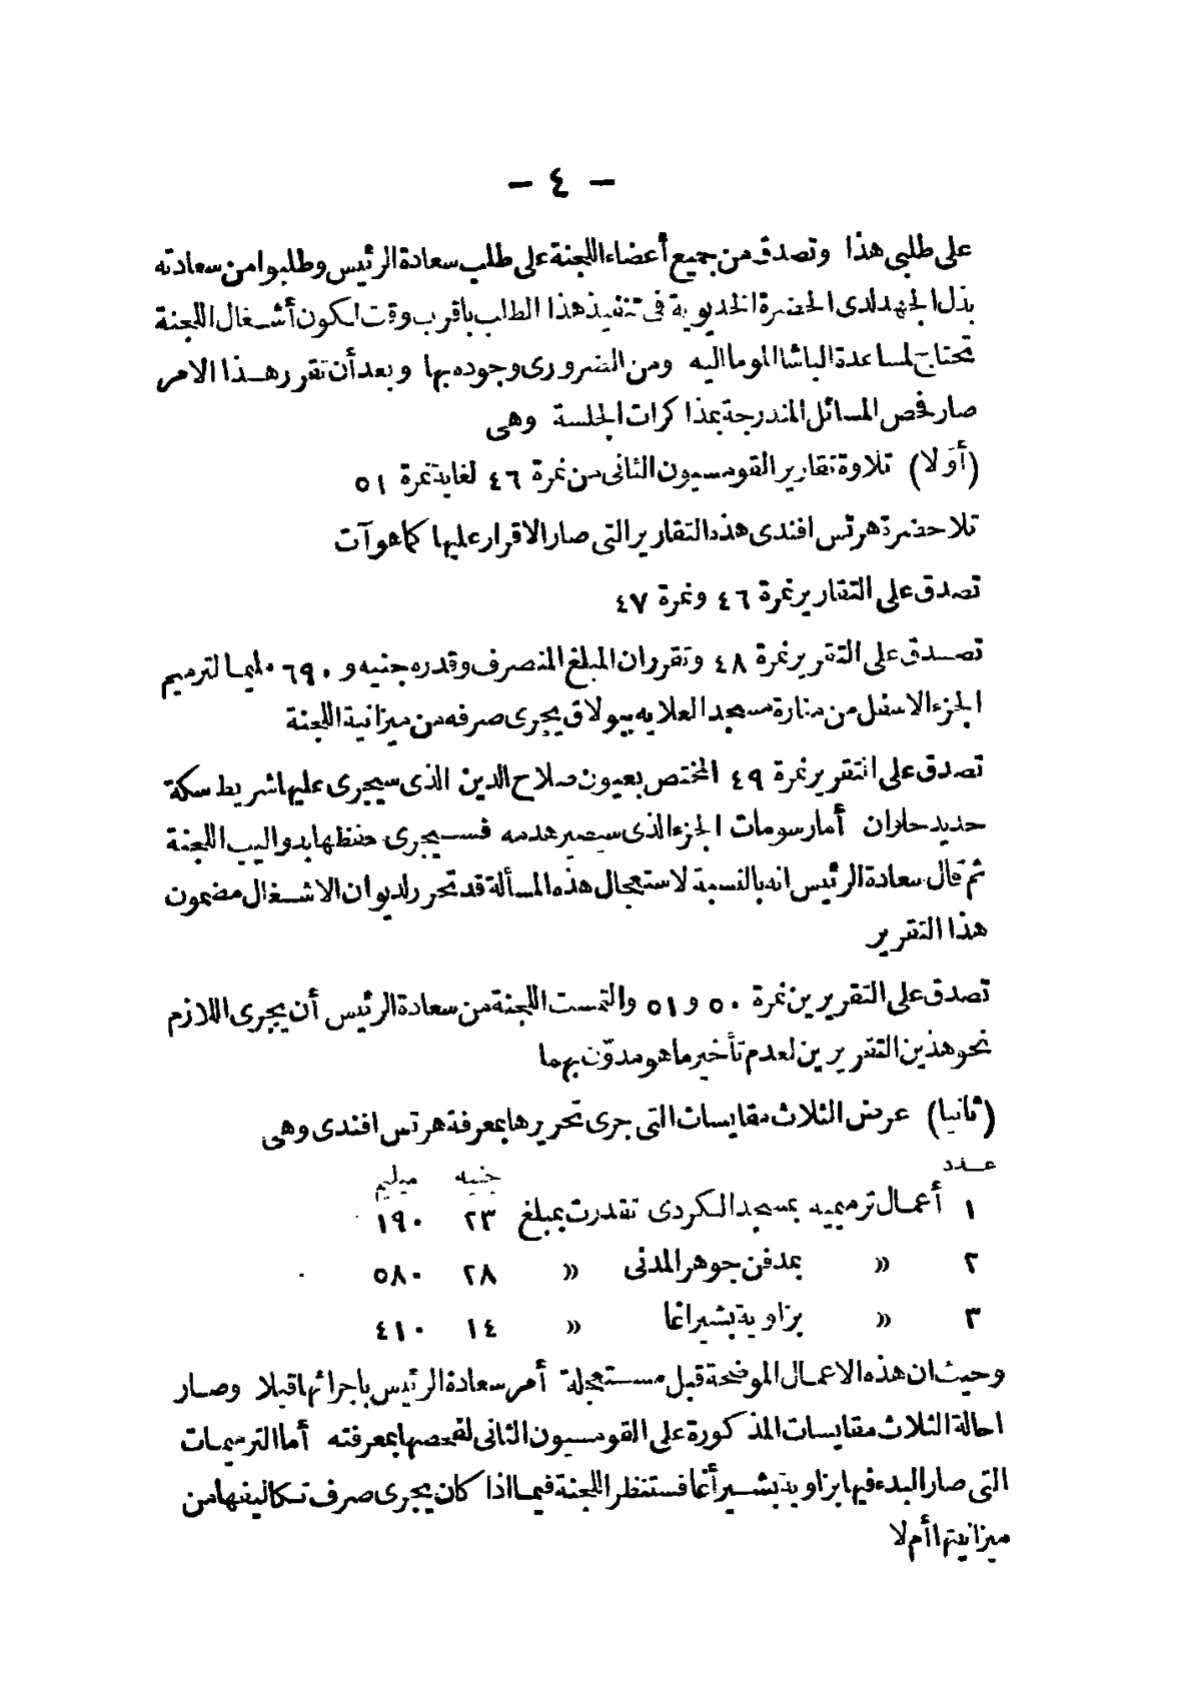 - ٤ -
على طلبى هذا وتصدق من جميع أعضاء اللجنة على طلب سعادة الرئيس وطلبوا من سعادته
بذل الجهد لدى الحضرة الخديوية فى تنفيذ هذا الطلب باقرب وقت لكون أشغال اللجنة
تحتاج لمساعدة الباشا الموما اليه ومن الضرورى وجوده بها وبعد أن تقرر هذا الامر
صار فحص المسائل المندرجة بمذاكرات الجلسة وهى
(أولا) تلاوة تقارير القومسيون الثانى من نمرة ٤٦ لغاية نمرة ٥١
تلا حضرة هرتس افندى هذه التقارير التى صار الاقرار عليها كما هو آت
تصدق على التقارير نمرة ٤٦ ونمرة ٤٧
تصدق على التقرير نمرة ٤٨ وتقرر ان المبلغ المنصرف وقدره جنيه و ٦٩٠ مليما لترميم
الجزء الاسفل من منارة مسجد العلايه ببولاق يجرى صرفه من ميزانية اللجنة
تصدق على التقرير نمرة ٤٩ المختص بعيون صلاح الدين الذى سيجرى عليها شريط سكة
حديد حلوان أما رسومات الجزء الذى سيصير هدمه فسيجرى حفظها بدواليب اللجنة
ثم قال سعادة الرئيس انه بالنسبة لاستعجال هذه المسألة قد تحرر لديوان الاشغال مضمون
هذا التقرير
تصدق على التقريرين نمرة ٥٠ و ٥١ والتمست اللجنة من سعادة الرئيس أن يجرى اللازم
نحو هذين التقريرين لعدم تأخير ما هو مدوّن بهما
(ثانيا) عرض الثلاث مقايسات التى جرى تحريرها بمعرفة هرتس افندى وهى
عدد جنيه مليم
١ أعمال ترميميه بمسجد الكردى تقدرت بمبلغ ٢٣ ١٩٠
٢ « بمدفن جوهر المدنى « ٢٨ ٥٨٠
٣ « بزاوية بشير اغا « ١٤ ٤١٠
وحيث ان هذه الاعمال الموضحة قبل مستعجلة أمر سعادة الرئيس باجرائها قبلا وصار
احالة الثلاث مقايسات المذكورة على القومسيون الثانى لفحصها بمعرفته أما الترميمات
التى صار البدء فيها بزاوية بشير أغا فستنظر اللجنة فيما اذا كان يجرى صرف تكاليفها من
ميزانيتها أم لا